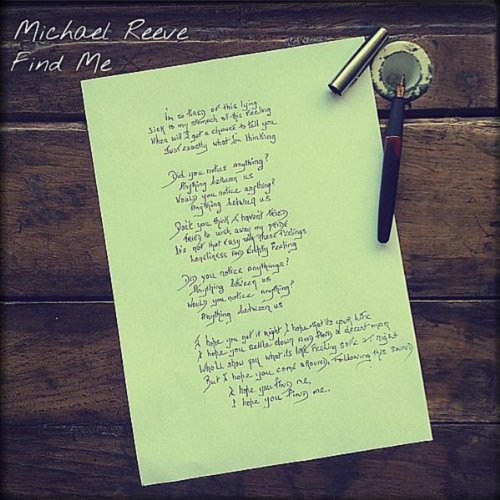 Michael Reeve
Find Me
I'm so tired of this lying
Sick to my stomach of this feeling
When will I get a chance to tell you
Just exactly what I'm thinking
Did you notice anything?
Anything between us
Would you notice anything?
Anything between us
Don't you think I haven't tried
tried to wish away my pride
It's not that easy with those feelings
Loneliness and Empty feeling
Did you notice anythings?
Anything between us
Would you notice anything?
Anything between us
I hope you get it right I hope that it's your life
I hope you settle down and find a decent man
Who'll show you what its like feeling safe at night
But I hope you come around, following this sound
I hope you find me,
I hope you find me.